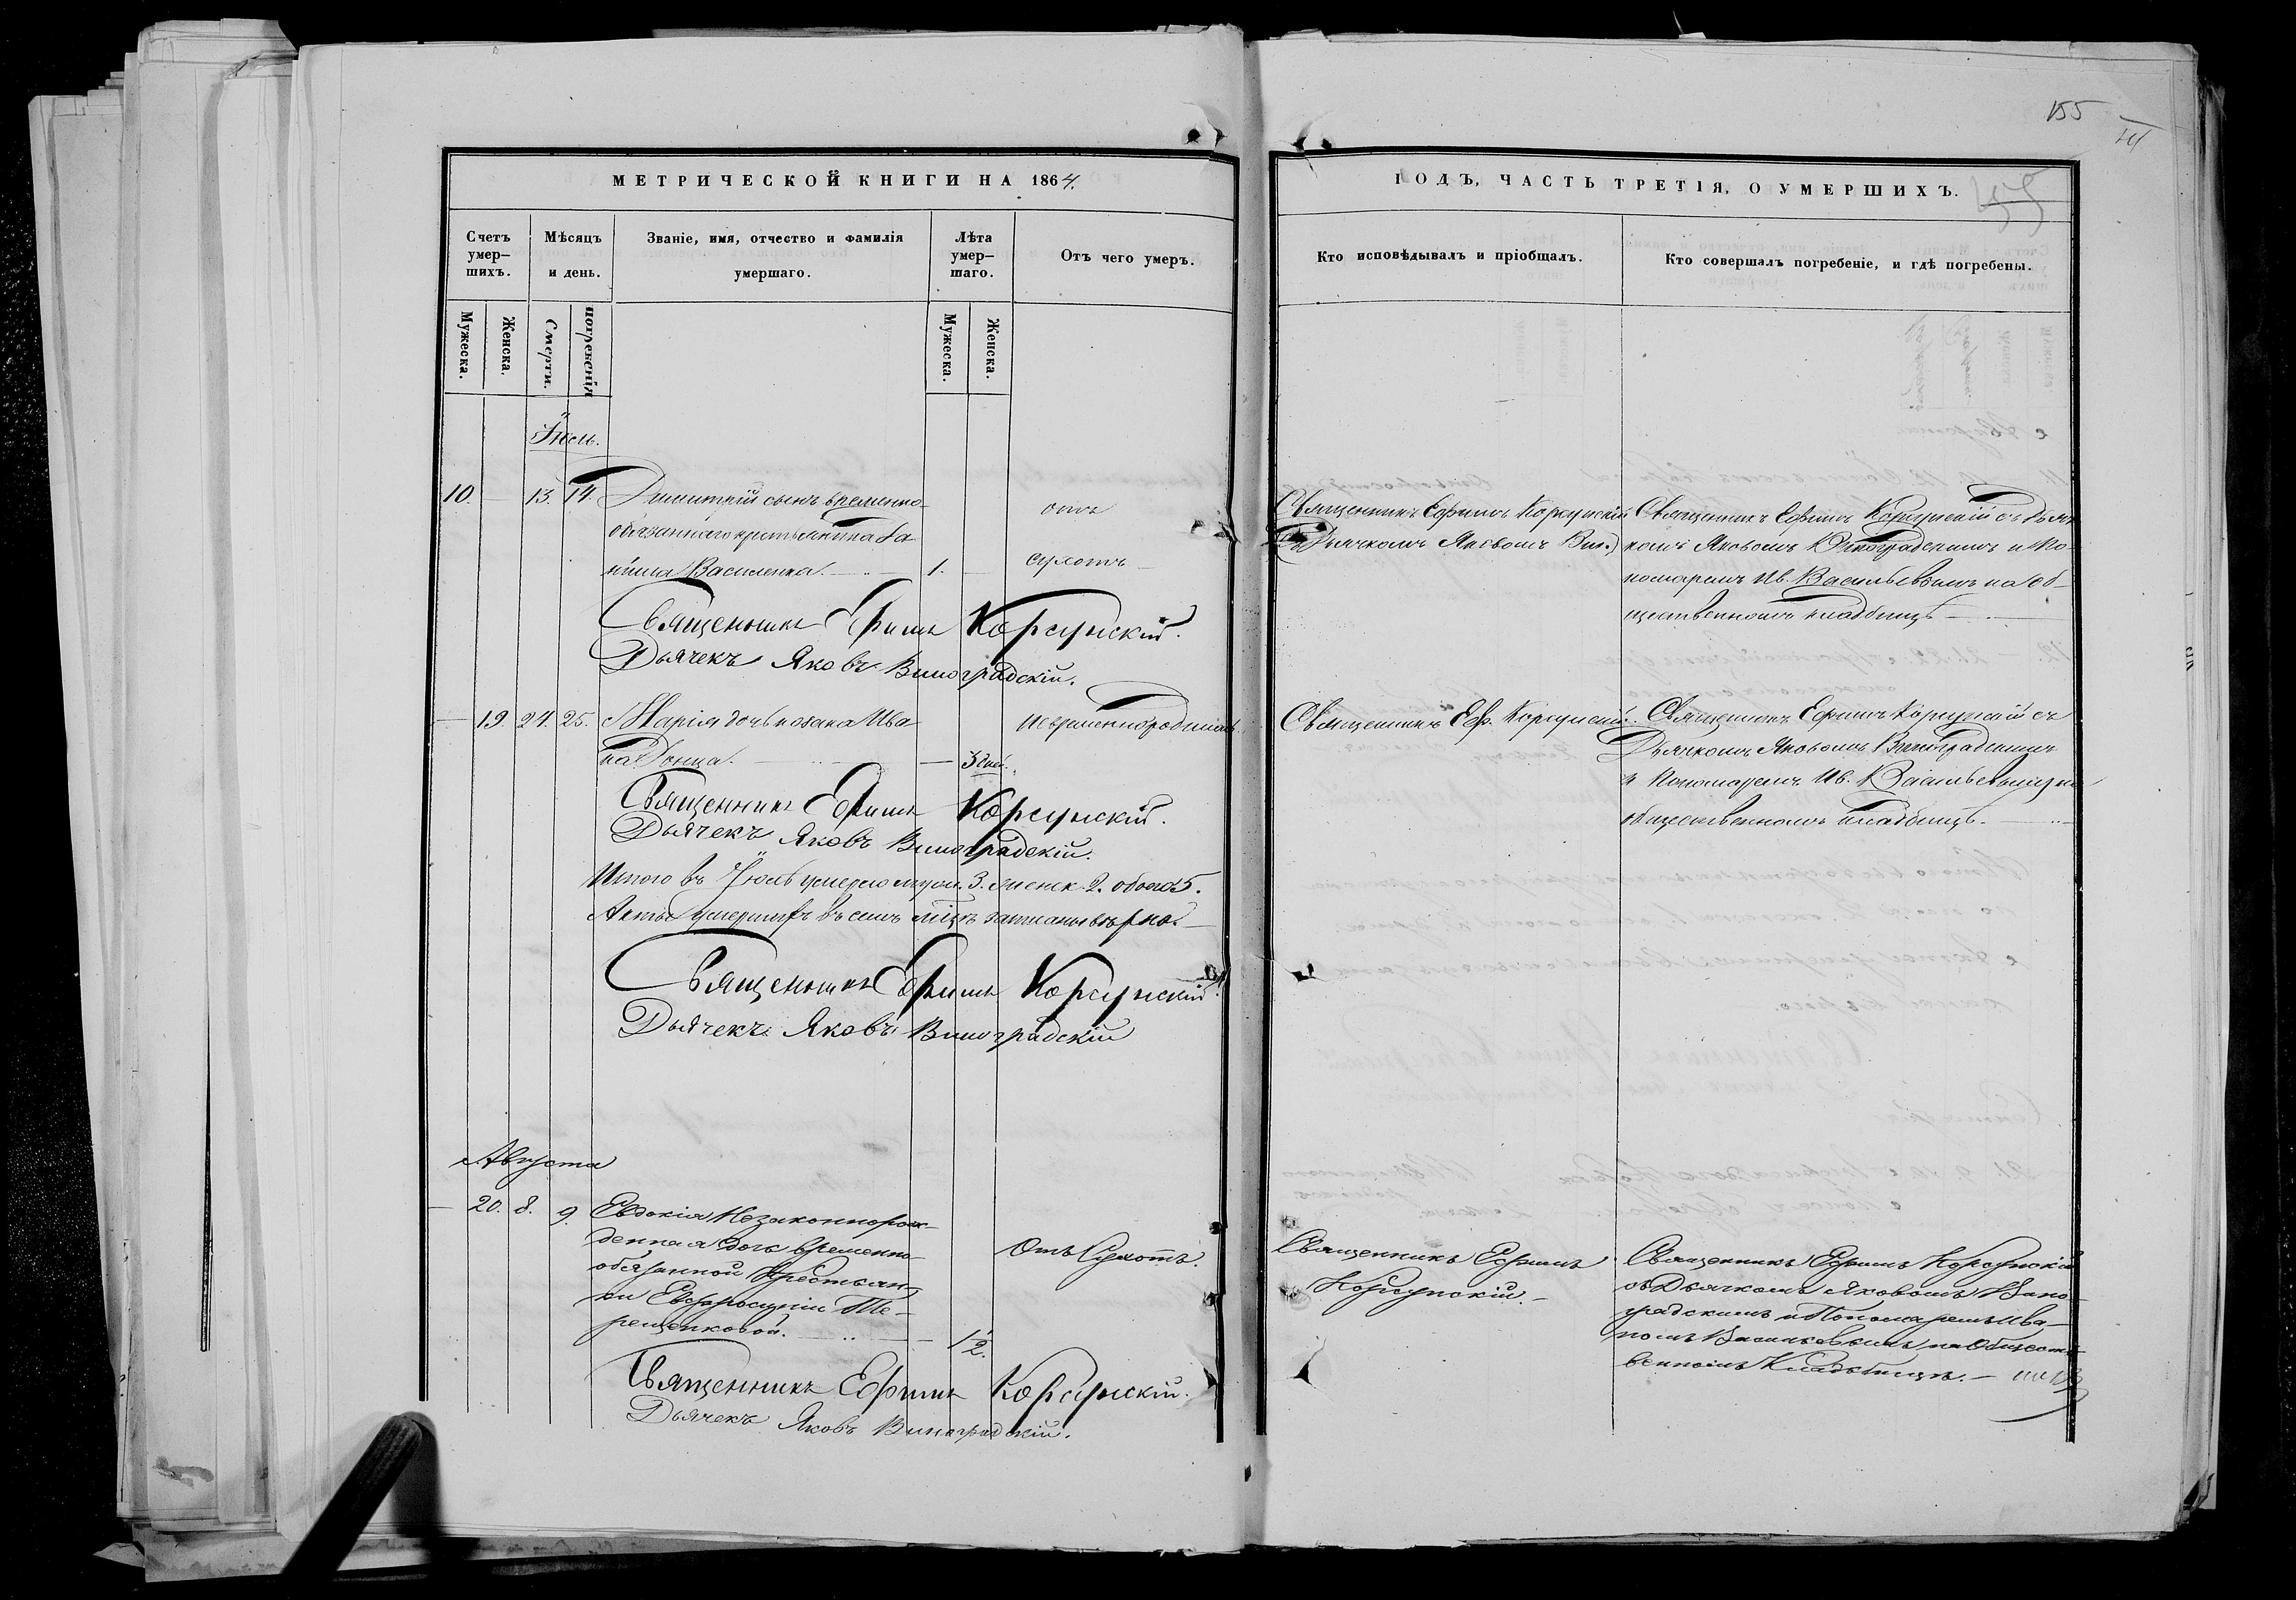 155
МЕТРИЧЕСКОЙ КНИГИ НА 1864.
ГОДЪ, ЧАСТЬ ТРЕТІЯ, О УМЕРШИХЪ.
Счетъ умер-
шихъ.
Мѣсяцъ
и день.
Званіе, имя, отчество и фамилія
умершаго.
Лѣта
умер-
шаго.
Отъ чего умеръ.
Кто исповѣдывалъ и пріобщалъ.
Кто совершалъ погребеніе, и гдѣ погребены.
Мужеска.
Женска.
Смерти.
погребенія
Мужеска.
Женска.
Іюль.
10. 13. 14. Димитрій сынъ временно-
обязаннаго крестьянина
Василенка. 1.
отъ
сухотъ
Священникъ Ефимъ Корсунскій
съ Дьячкомъ Яковомъ Вин.
Священникъ Ефимъ Корсунскій съ Дьяч
комъ Яковомъ Виноградскимъ и По-
номаремъ Ив. Васильевымъ на об-
щественномъ кладбищѣ
Священникъ Ефимъ Корсунскій.
Дьячекъ Яковъ Виноградскій.
19. 24. 25. Марія дочь козака Ива
на Донца. 3 дней.
Священникъ Еф. Корсунскій.
Священникъ Ефимъ Корсунскій съ
Дьячкомъ Яковомъ Виноградскимъ
и Пономаремъ Ив. Васильевымъ на
общественномъ кладбищѣ.
Священникъ Ефимъ Корсунскій.
Дьячекъ Яковъ Виноградскій.
Итого въ Іюлѣ умерло муж. 3. женск. 2. обоего 5.
Акты умершихъ въ семъ записаны вѣрно.
Священникъ Ефимъ Корсунскій.
Дьячекъ Яковъ Виноградскій
Августа
20. 8. 9. Евдокія Незаконнорож-
денная дочь временно
обязанной Крестьян
ки Евфросиніи Те-
рещенковой. 1/2.
Отъ Сухотъ.
Священникъ Ефимъ
Корсунскій.
Священникъ Ефимъ Корсунскій
съ Дьячкомъ Яковомъ Вино
градскимъ и Пономаремъ Ива-
номъ Васильевымъ на Общест-
венномъ Кладбищѣ.
Священникъ Ефимъ Корсунскій.
Дьячекъ Яковъ Виноградскій.